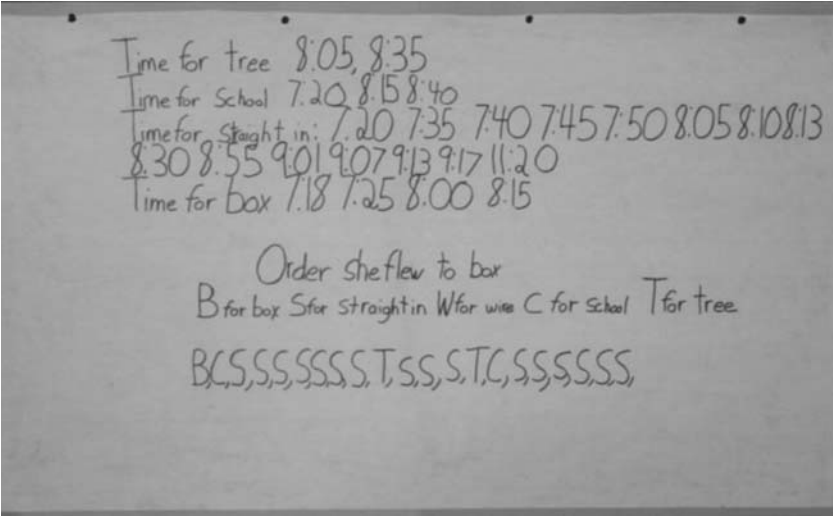 Time for tree 8:05, 8:35
Time for School 7:20 8:15 8:40
Time for Straight in: 7:20 7:35 7:40 7:45 7:50 8:05 8:10 8:13
8:30 8:55 9:01 9:07 9:13 9:17 11:20
Time for box 7:18 7:25 8:00 8:15
Order she flew to box
B for box S for straight in W for wire C for School T for tree
B,C,S,S,S,S,S,S,S,T,S,S,S,T,C,S,S,S,S,S,S,